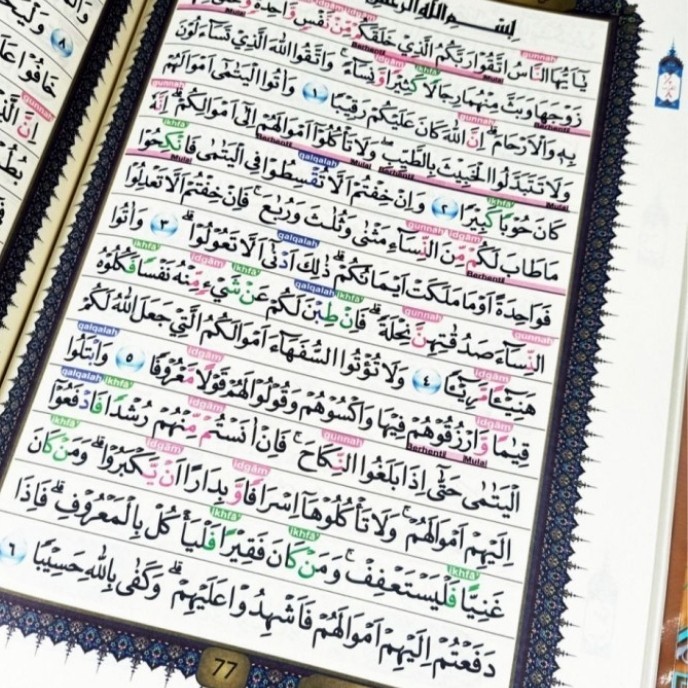 بِسْمِ اللّٰهِ الرَّحْمٰنِ
يٰٓاَيُّهَا النَّاسُ اتَّقُوْا رَبَّكُمُ الَّذِيْ خَلَقَكُمْ مِّنْ نَّفْسٍ وَّاحِدَةٍ
زَوْجَهَا وَبَثَّ مِنْهُمَا رِجَالًا كَثِيْرًا وَّنِسَاۤءً ۚ وَاتَّقُوا اللّٰهَ الَّذِيْ تَسَاۤءَلُوْنَ
بِهٖ وَالْاَرْحَامَ ۗ اِنَّ اللّٰهَ كَانَ عَلَيْكُمْ رَقِيْبًا ١ وَاٰتُوا الْيَتٰمٰىٓ اَمْوَالَهُمْ
وَلَا تَتَبَدَّلُوا الْخَبِيْثَ بِالطَّيِّبِ ۖ وَلَا تَأْكُلُوْٓا اَمْوَالَهُمْ اِلٰٓى اَمْوَالِكُمْ ۗ اِنَّهٗ
كَانَ حُوْبًا كَبِيْرًا ٢ وَاِنْ خِفْتُمْ اَلَّا تُقْسِطُوْا فِى الْيَتٰمٰى فَانْكِحُوْا
مَا طَابَ لَكُمْ مِّنَ النِّسَاۤءِ مَثْنٰى وَثُلٰثَ وَرُبٰعَ ۚ فَاِنْ خِفْتُمْ اَلَّا تَعْدِلُوْا
فَوَاحِدَةً اَوْ مَا مَلَكَتْ اَيْمَانُكُمْ ۗ ذٰلِكَ اَدْنٰىٓ اَلَّا تَعُوْلُوْا ۗ ٣ وَاٰتُوا
النِّسَاۤءَ صَدُقٰتِهِنَّ نِحْلَةً ۗ فَاِنْ طِبْنَ لَكُمْ عَنْ شَيْءٍ مِّنْهُ نَفْسًا فَكُلُوْهُ
هَنِيْۤـًٔا مَّرِيْۤـًٔا ٤ وَلَا تُؤْتُوا السُّفَهَاۤءَ اَمْوَالَكُمُ الَّتِيْ جَعَلَ اللّٰهُ لَكُمْ
قِيٰمًا وَّارْزُقُوْهُمْ فِيْهَا وَاكْسُوْهُمْ وَقُوْلُوْا لَهُمْ قَوْلًا مَّعْرُوْفًا ٥ وَابْتَلُوا
الْيَتٰمٰى حَتّٰىٓ اِذَا بَلَغُوا النِّكَاحَ ۚ فَاِنْ اٰنَسْتُمْ مِّنْهُمْ رُشْدًا فَادْفَعُوْٓا
اِلَيْهِمْ اَمْوَالَهُمْ ۚ وَلَا تَأْكُلُوْهَآ اِسْرَافًا وَّبِدَارًا اَنْ يَّكْبَرُوْا ۗ وَمَنْ كَانَ
غَنِيًّا فَلْيَسْتَعْفِفْ ۚ وَمَنْ كَانَ فَقِيْرًا فَلْيَأْكُلْ بِالْمَعْرُوْفِ ۗ فَاِذَا
دَفَعْتُمْ اِلَيْهِمْ اَمْوَالَهُمْ فَاَشْهِدُوْا عَلَيْهِمْ ۗ وَكَفٰى بِاللّٰهِ حَسِيْبًا ٦
77